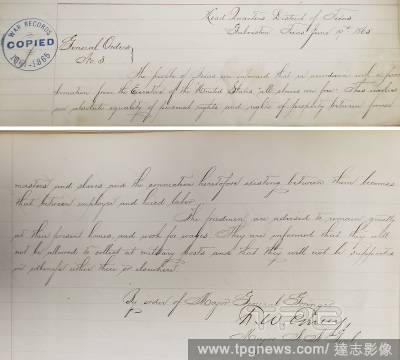 WAR RECORDS
COPIED
1861-1865
Head Quarters District of Texas
Galveston Texas June 19th 1865
General Orders
No. 3
The people of Texas are informed that in accordance with a Proc-
lamation from the Executive of the United States, all slaves are free. This involves
an absolute equality of personal rights and rights of property between former
masters and slaves and the connection heretofore existing between them becomes
that between employer and hired labor.
The freedmen are advised to remain quietly
at their present homes, and work for wages. They are informed that they will
not be allowed to collect at military posts and that they will not be supported
in idleness either there or elsewhere.
By order of Major General Granger
F. W. Emery
Major
www.tpgnews.com / 達志影像